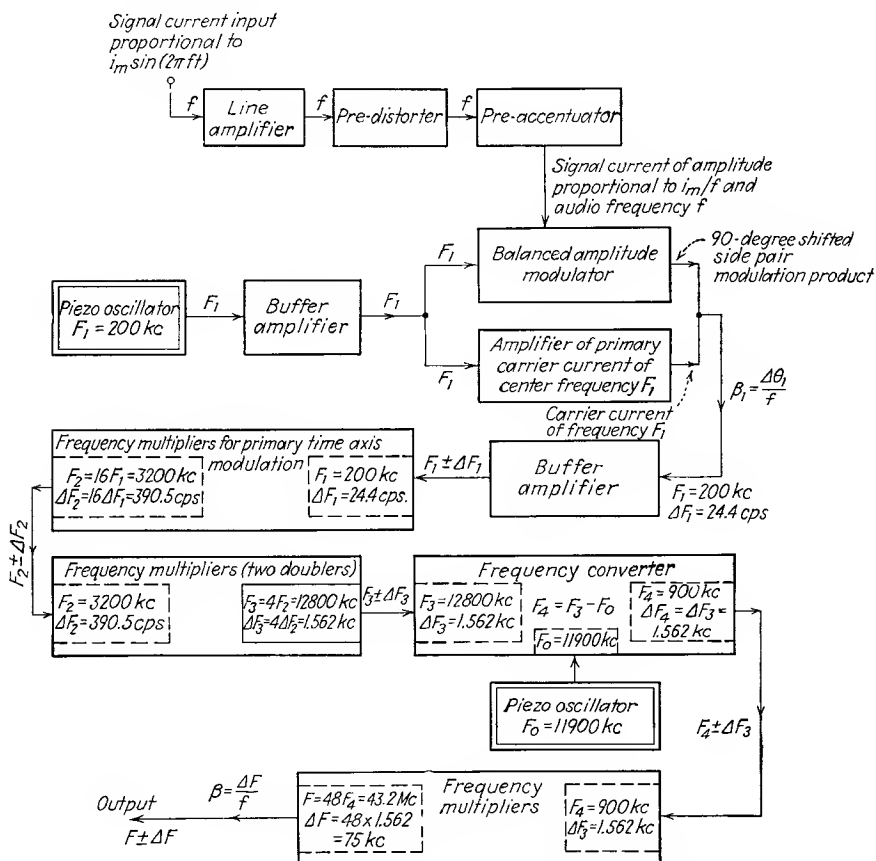 Signal current input
proportional to
i_m sin(2πft)
f
Line
amplifier
f
Pre-distorter
f
Pre-accentuator
Signal current of amplitude
proportional to i_m/f and
audio frequency f
Piezo oscillator
F₁ = 200 kc
F₁
Buffer
amplifier
F₁
F₁
Balanced amplitude
modulator
90-degree shifted
side pair
modulation product
F₁
Amplifier of primary
carrier current of
center frequency F₁
Carrier current
of frequency F₁
β₁ = Δθ₁/f
F₁ = 200 kc
ΔF₁ = 24.4 cps
Buffer
amplifier
F₁ ± ΔF₁
Frequency multipliers for primary time axis
modulation
F₁ = 200 kc
ΔF₁ = 24.4 cps.
F₂ = 16F₁ = 3200 kc
ΔF₂ = 16ΔF₁ = 390.5 cps
F₂ ± ΔF₂
Frequency multipliers (two doublers)
F₂ = 3200 kc
ΔF₂ = 390.5 cps
F₃ = 4F₂ = 12800 kc
ΔF₃ = 4ΔF₂ = 1.562 kc
F₃ ± ΔF₃
Frequency converter
F₃ = 12800 kc
ΔF₃ = 1.562 kc
F₄ = F₃ - F₀
F₀ = 11900 kc
F₄ = 900 kc
ΔF₄ = ΔF₃ =
1.562 kc
Piezo oscillator
F₀ = 11900 kc
F₄ ± ΔF₃
Frequency
multipliers
F₄ = 900 kc
ΔF₃ = 1.562 kc
F = 48F₄ = 43.2 Mc
ΔF = 48 x 1.562
= 75 kc
β = ΔF/f
Output
F ± ΔF